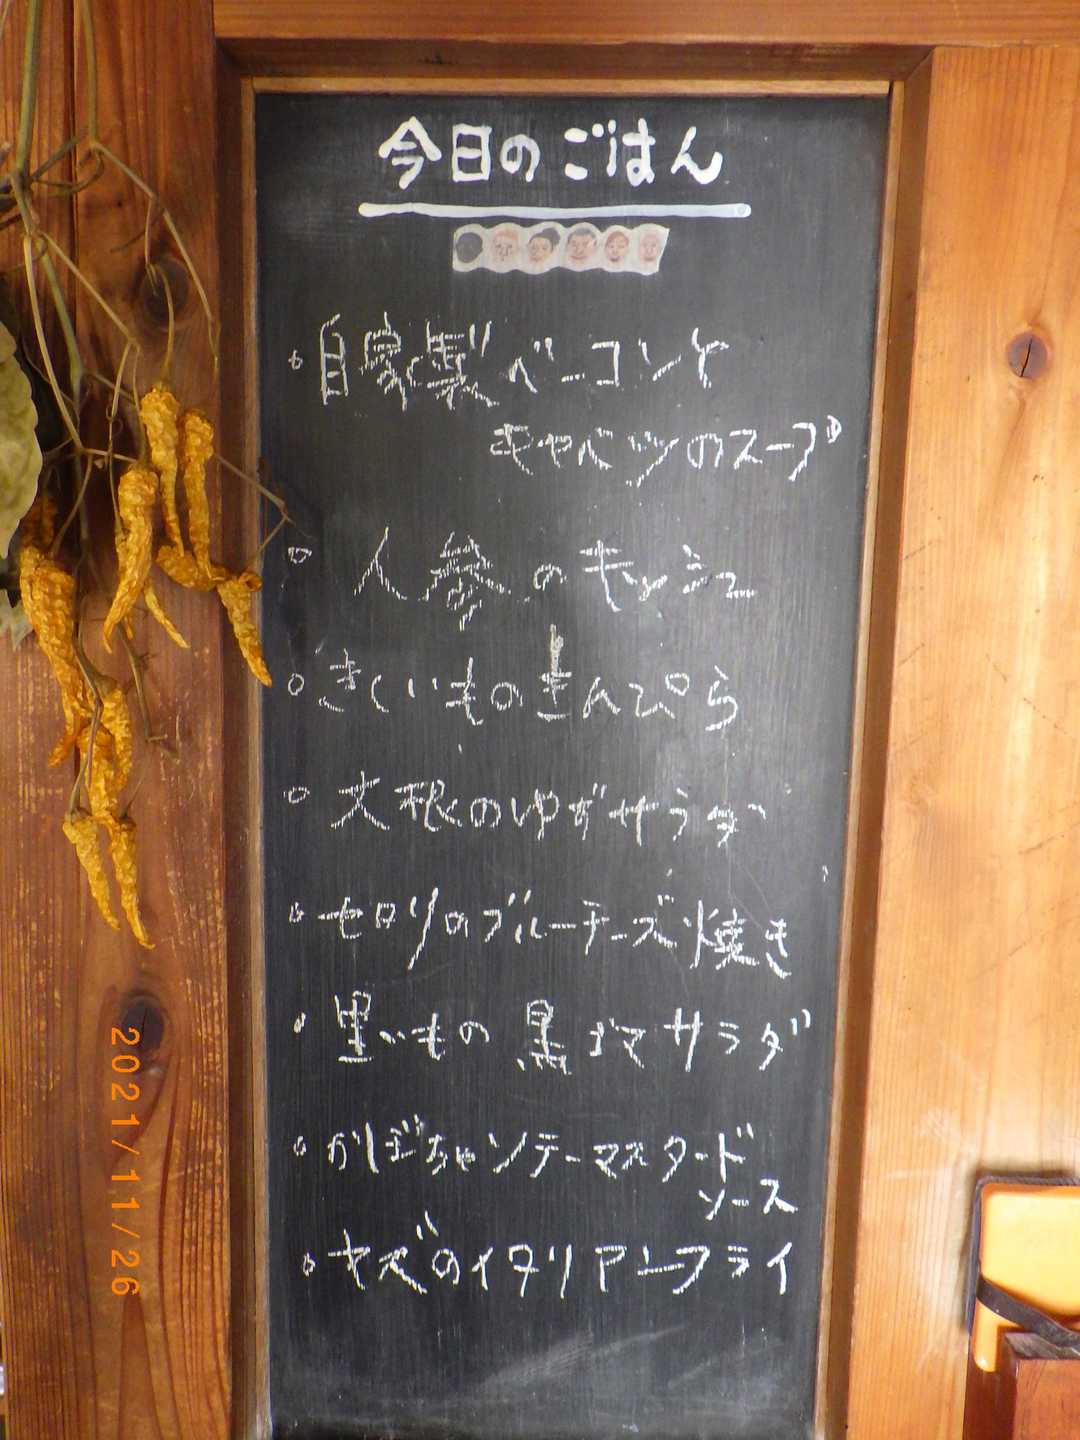 今日のごはん
自家製ベーコンと
キャベツのスープ
人参のキッシュ
きくいものきんぴら
大根のゆずサラダ
セロリのブルーチーズ焼き
里いもの黒ゴマサラダ
かぼちゃソテーマスタード
ソース
ヤズのイタリアンフライ
2021/11/26